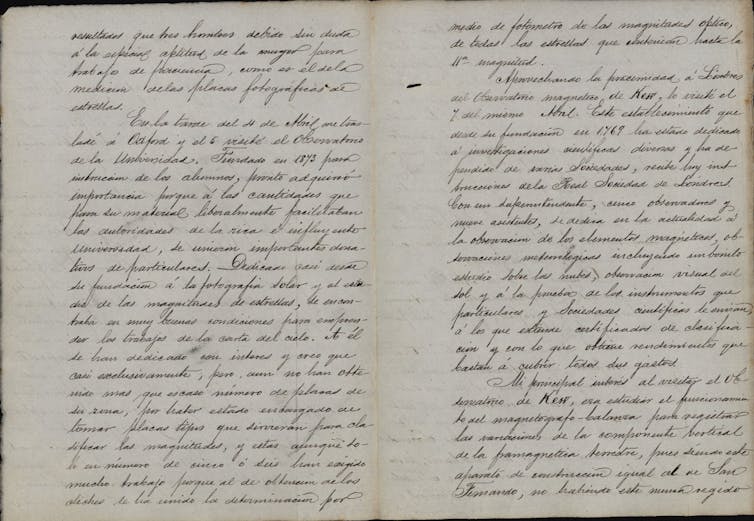 resultados que tres hombres debido sin duda
á la especial aptitud de la mujer para
trabajo de paciencia, como es el de la
medicion de las placas fotográficas de
estrellas.
En la tarde del 4 de Abril me tras-
ladé á Oxford y el 5 visité el Observatorio
de la Universidad. Fundado en 1873 para
instruccion de los alumnos, pronto adquirió
importancia porque á las cantidades que
para su material liberalmente facilitaban
las autoridades de la rica é influyente
Universidad, se unieron importantes dona-
tivos de particulares. Dedicado casi desde
su fundacion á la fotografia solar y al estu-
dio de las magnitudes de estrellas, se encon-
traba en muy buenas condiciones para empren-
der los trabajos de la carta del cielo. A él
se han dedicado con interes y creo que
casi exclusivamente, pero aun no han obte-
nido mas que escaso número de placas de
su zona, por haber estado encargado de
tomar placas tipos que sirvieran para cla-
sificar las magnitudes, y estas aunque so-
lo en número de cinco ó seis han exigido
mucho trabajo porque al de obtencion de los
clichés se ha unido la determinacion por
medio de fotometro de las magnitudes
de todas las estrellas que contenian hasta la
11ª magnitud.
Aprovechando la proximidad á Londres
del Observatorio magnetico, de Kew, lo visité el
7 del mismo Abril. Este establecimiento que
desde su fundacion en 1769 ha estado dedicado
á investigaciones cientificas diversas y ha de-
pendido de varias Sociedades, recibe hoy ins-
trucciones de la Real Sociedad de Londres.
Con un Superintendente, cinco observadores y
nueve asistentes, se dedica en la actualidad á
la observacion de los elementos magneticos, ob-
servaciones meteorologicas incluyendo un bonito
estudio sobre las nubes, observacion visual del
sol y á la prueba de los instrumentos que
particulares y Sociedades cientificas le envian,
á los que extiende certificados de clasifica
cion y con lo que obtiene rendimientos que
bastan á cubrir todos sus gastos.
Mi principal interes al visitar el Ob-
servatorio de Kew, era estudiar el funcionamien
to del magnetografo-balanza para registrar
las variaciones de la componente vertical
de la magnetica terrestre, pues siendo este
aparato de construccion igual al de San
Fernando, no habiendo este nunca regido